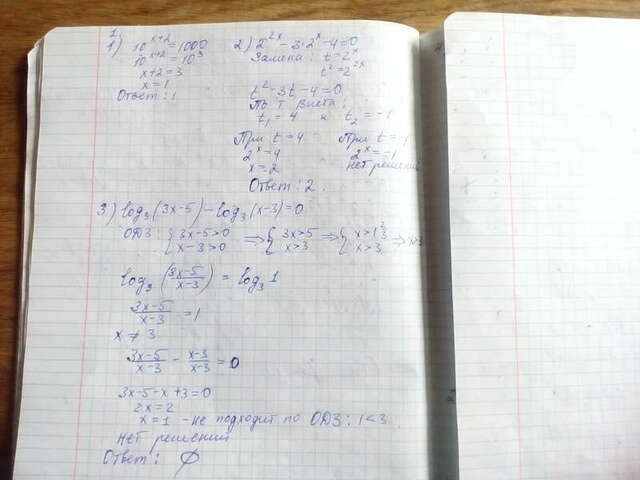 1
1) 10^(x+2) = 1000
10^(x+2) = 10^3
x+2 = 3
x = 1
Ответ: 1
2) 2^(2x) - 3·2^x - 4 = 0
Замена: t = 2^x
t^2 = 2^(2x)
t^2 - 3t - 4 = 0
По т. Виета:
t₁ = 4 и t₂ = -1
При t = 4
2^x = 4
x = 2
При t = -1
2^x = -1
нет решений
Ответ: 2.
3) log₃(3x-5) - log₃(x-3) = 0
ОДЗ: { 3x-5>0 x-3>0 ⇒ { 3x>5 x>3 ⇒ { x>1 2/3 x>3 ⇒ x>3
log₃((3x-5)/(x-3)) = log₃1
(3x-5)/(x-3) = 1
x ≠ 3
(3x-5)/(x-3) - (x-3)/(x-3) = 0
3x-5-x+3=0
2x=2
x=1 - не подходит по ОДЗ: 1<3
нет решений
Ответ: ∅